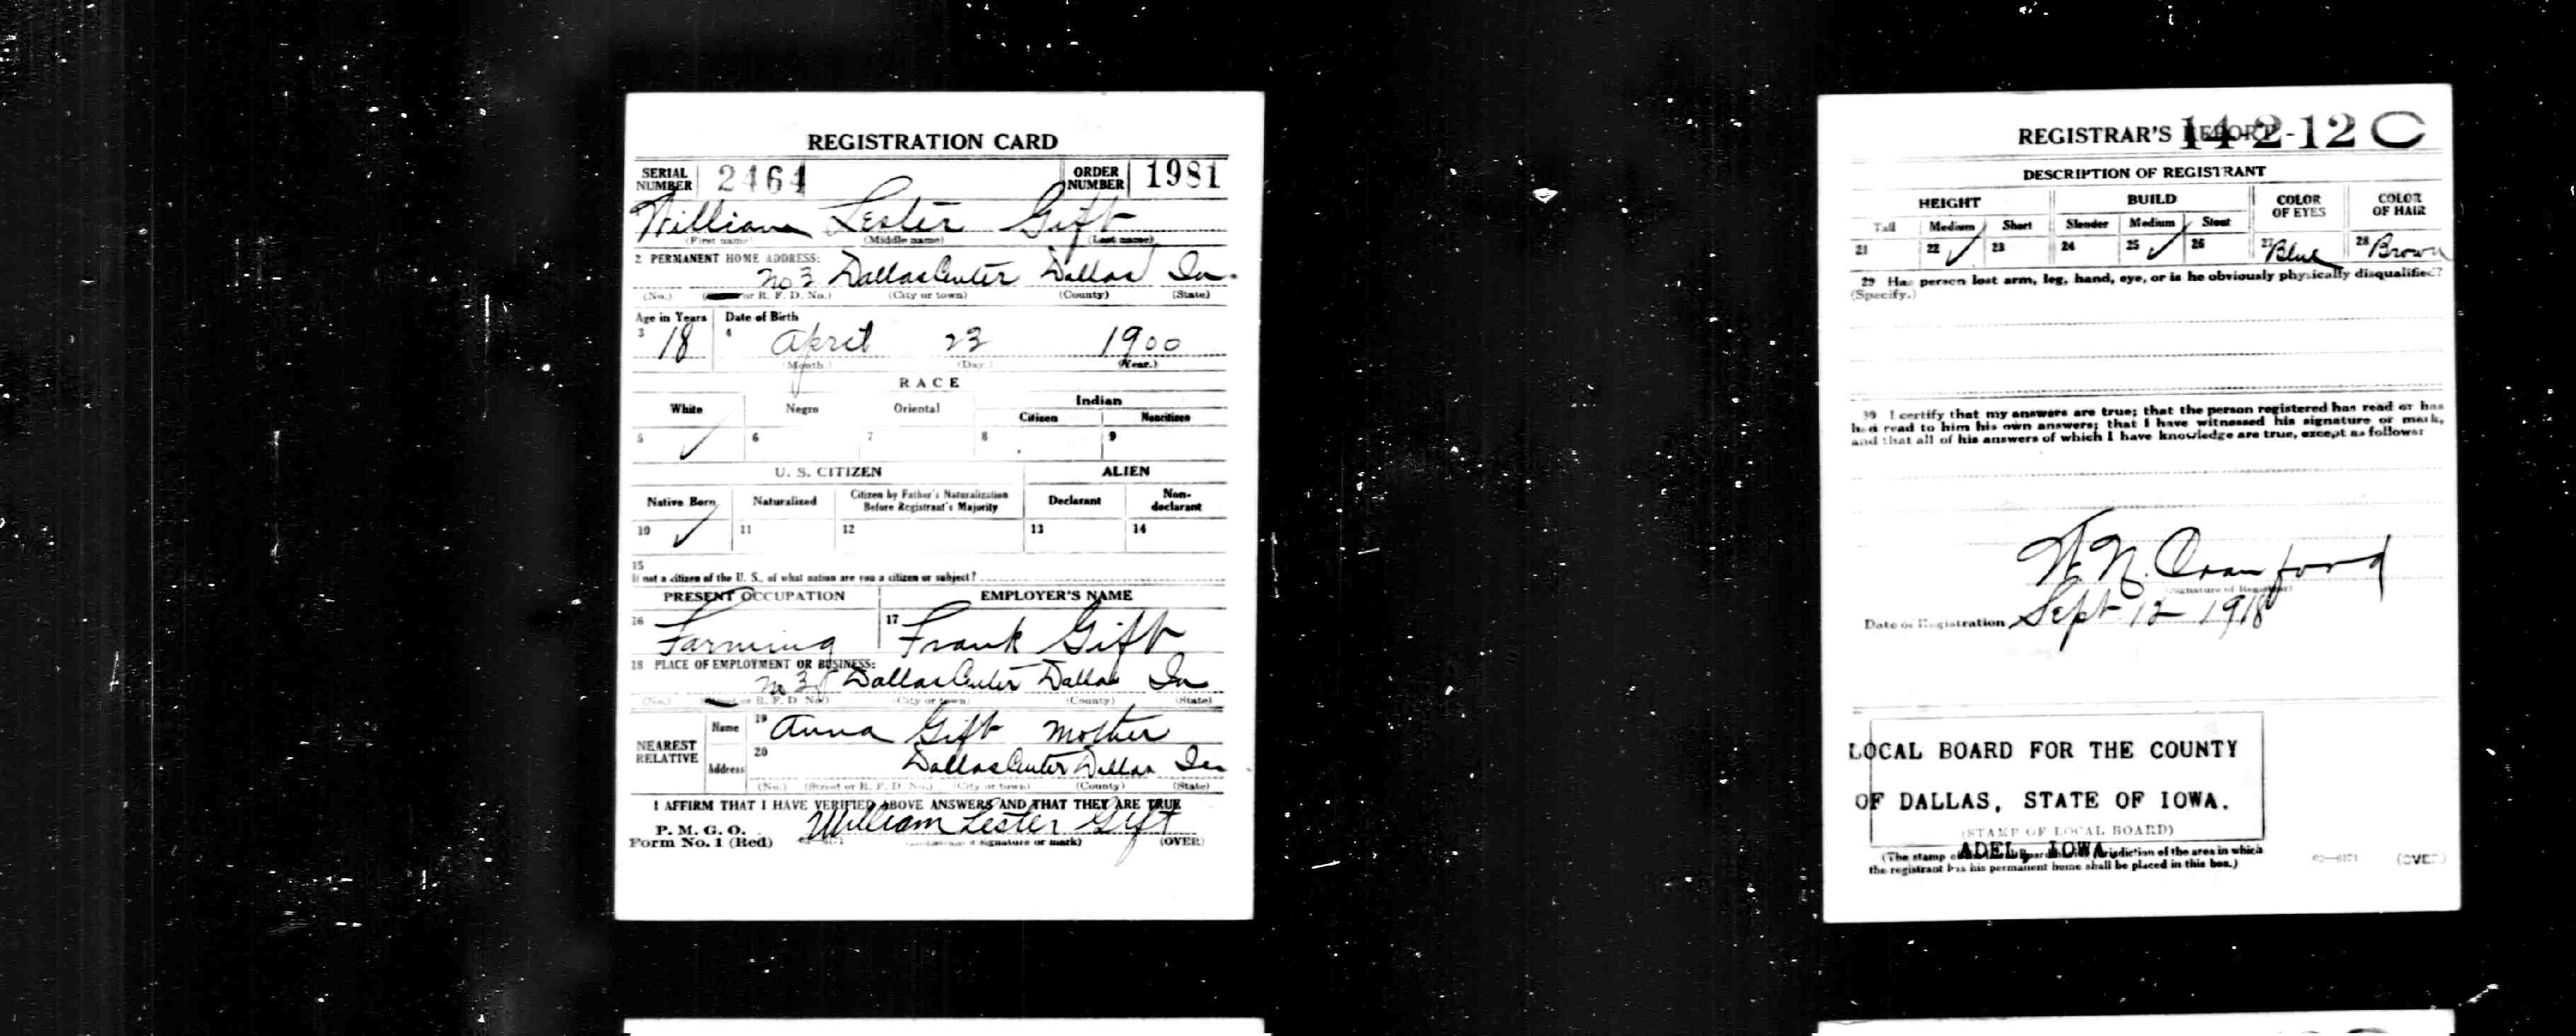 REGISTRATION CARD
SERIAL NUMBER 2464 ORDER NUMBER 1981
William Lester Gift
(First name) (Middle name) (Last name)
2 PERMANENT HOME ADDRESS:
No 3 Dallas Center Dallas Ia.
(No.) or R. F. D. No.) (City or town) (County) (State)
Age in Years Date of Birth
3 18 4 April 23 1900
(Month.) (Day.) (Year.)
RACE
White Negro Oriental Indian
Citizen Noncitizen
5 ✓ 6 7 8 9
U. S. CITIZEN ALIEN
Native Born Naturalized Citizen by Father's Naturalization Before Registrant's Majority Declarant Non-declarant
10 ✓ 11 12 13 14
15
If not a citizen of the U. S., of what nation are you a citizen or subject?
PRESENT OCCUPATION EMPLOYER'S NAME
16 Farming 17 Frank Gift
18 PLACE OF EMPLOYMENT OR BUSINESS:
No 3 Dallas Center Dallas Ia
(No.) or R. F. D. No.) (City or town) (County) (State)
NEAREST RELATIVE Name 19 Anna Gift Mother
Address 20 Dallas Center Dallas Ia
(No.) (Street or R. F. D. No.) (City or town) (County) (State)
I AFFIRM THAT I HAVE VERIFIED ABOVE ANSWERS AND THAT THEY ARE TRUE
P. M. G. O.
Form No. 1 (Red) William Lester Gift
signature or mark) (OVER)
REGISTRAR'S REPORT 14-2-12 C
DESCRIPTION OF REGISTRANT
HEIGHT BUILD COLOR OF EYES COLOR OF HAIR
Tall Medium Short Slender Medium Stout
21 22 ✓ 23 24 25 ✓ 26 27 Blue 28 Brown
29 Has person lost arm, leg, hand, eye, or is he obviously physically disqualified?
(Specify.)
30 I certify that my answers are true; that the person registered has read or has
had read to him his own answers; that I have witnessed his signature or mark,
and that all of his answers of which I have knowledge are true, except as follows:
(Signature of Registrar)
Date of Registration Sept 12 1918
LOCAL BOARD FOR THE COUNTY
OF DALLAS, STATE OF IOWA.
(STAMP OF LOCAL BOARD)
ADEL, IOWA
(The stamp jurisdiction of the area in which
the registrant has his permanent home shall be placed in this box.)
(OVER)